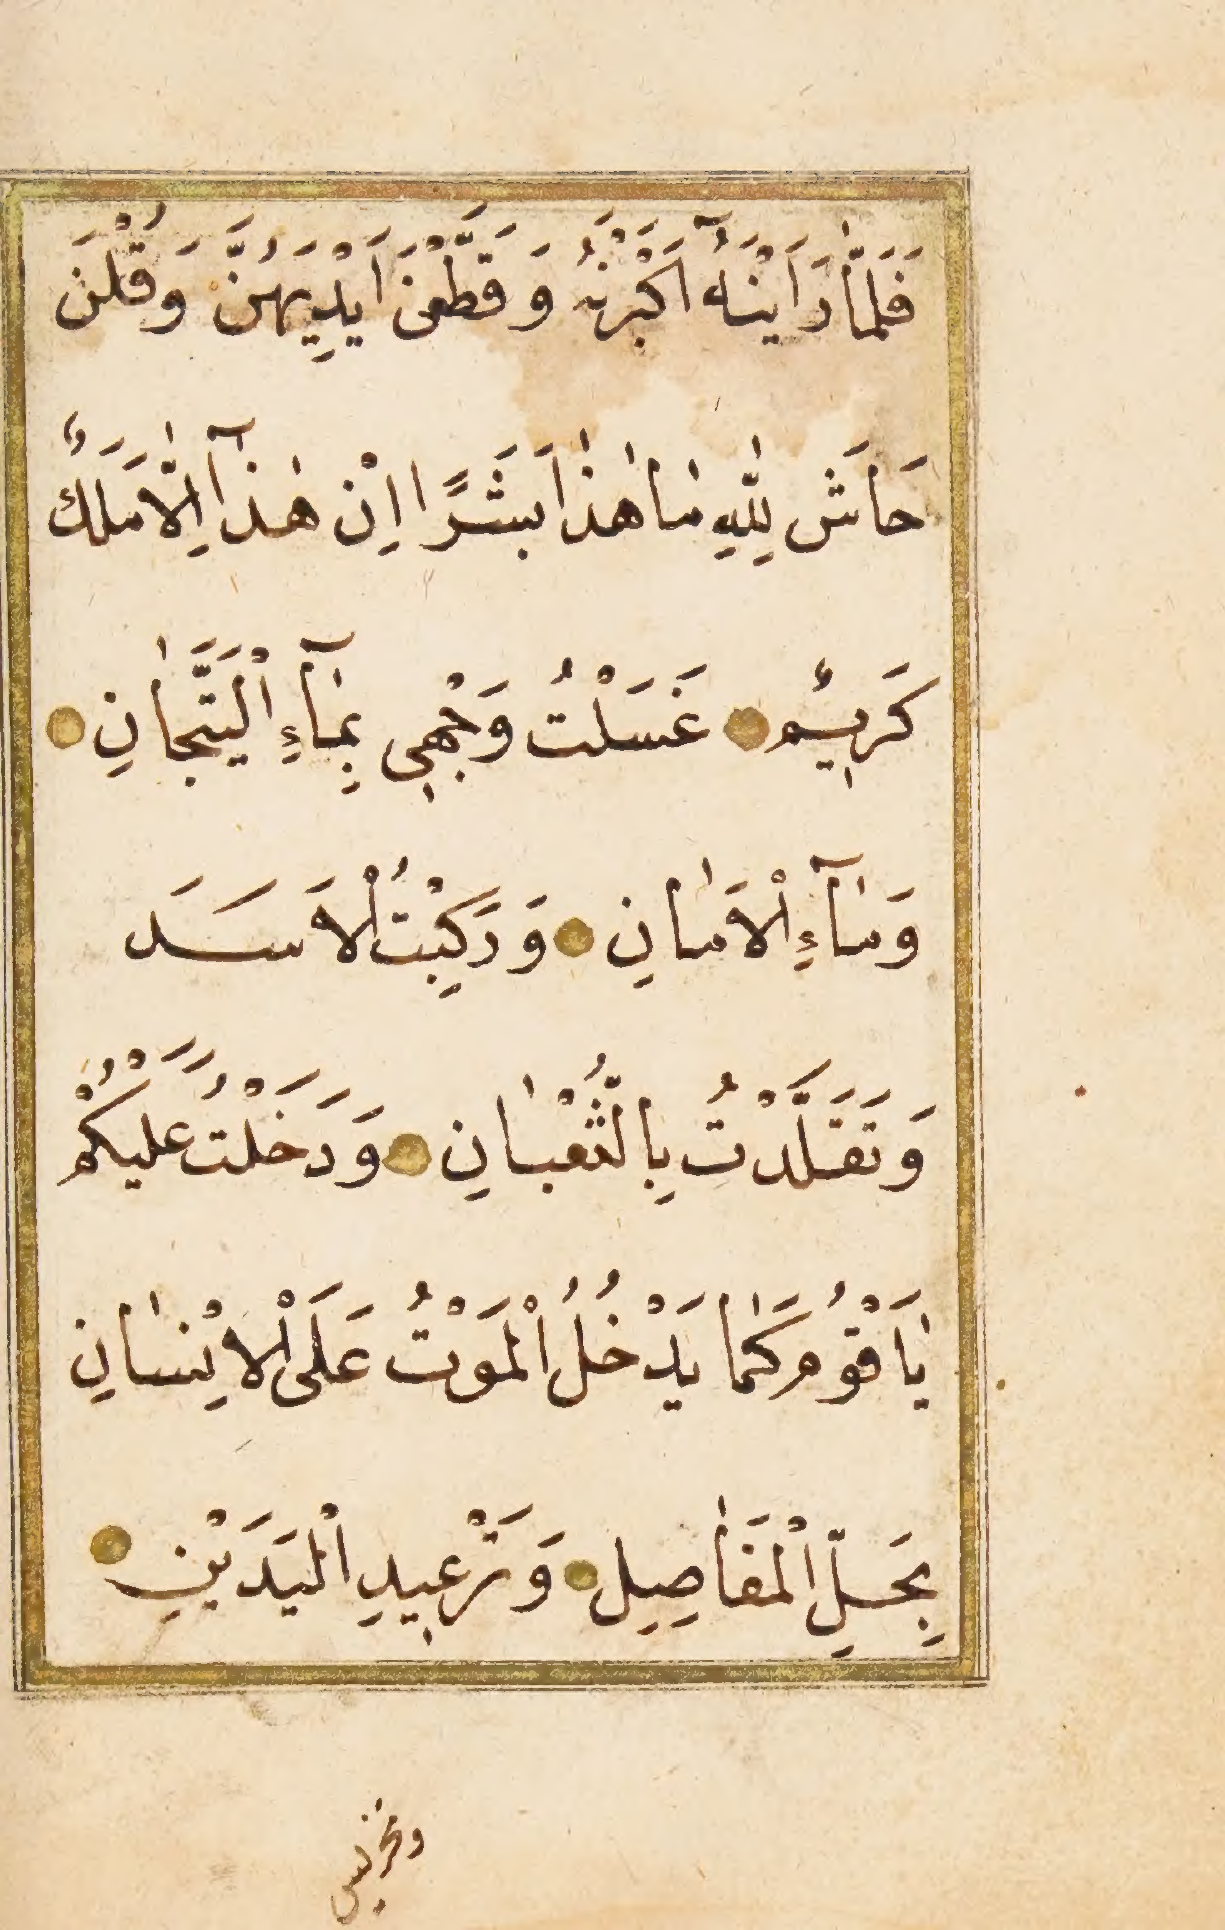 فَلَمَّا رَاَيْنَهُٓ اَكْبَرْنَهُ وَ قَطَّعْنَ اَيْدِيَهُنَّ وَ قُلْنَ
حَاشَ لِلّٰهِ مٰا هٰذٰا بَشَرًا اِنْ هٰذَٓا اِلّٰا مَلَكٌ
كَرٖيمٌ غَسَلْتُ وَجْهٖى بِمٰٓاءِ الْيَتَّجٰانِ
وَ مٰٓاءِ الْاَمٰانِ وَ رَكِبْتُ الْاَسَدَ
وَ تَقَلَّدْتُ بِالثُّعْبٰانِ وَ دَخَلْتُ عَلَيْكُمْ
يٰا قَوْمُ كَمٰا يَدْخُلُ الْمَوْتُ عَلَى الْاِنْسٰانِ
بِحَلِّ الْمَفٰاصِلِ وَ تَرْعٖيدِ الْيَدَيْنِ